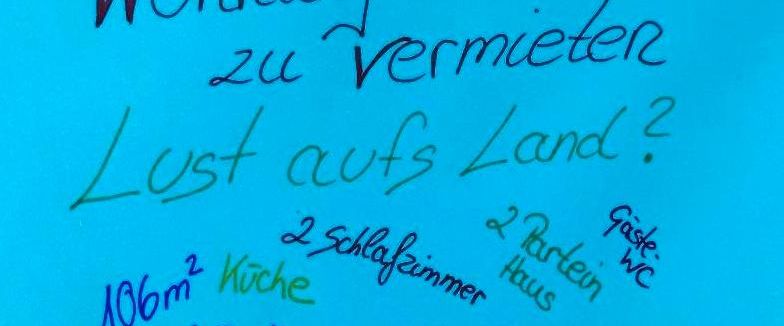 zu vermieten
Lust aufs Land?
106m² Küche
2 Schlafzimmer
2 Partein
Haus
Gäste-
WC